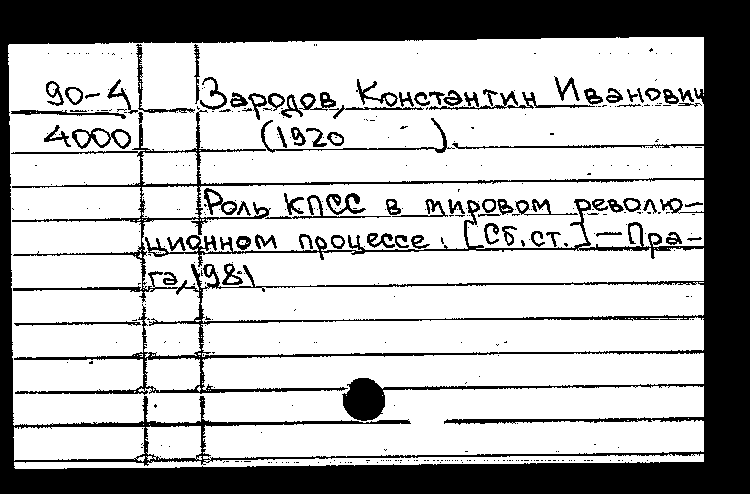 90-4 Зародов, Константин Иванович
4000 (1920 - ).
Роль КПСС в мировом револю-
ционном процессе. [Сб. ст.] - Пра-
га, 1981.